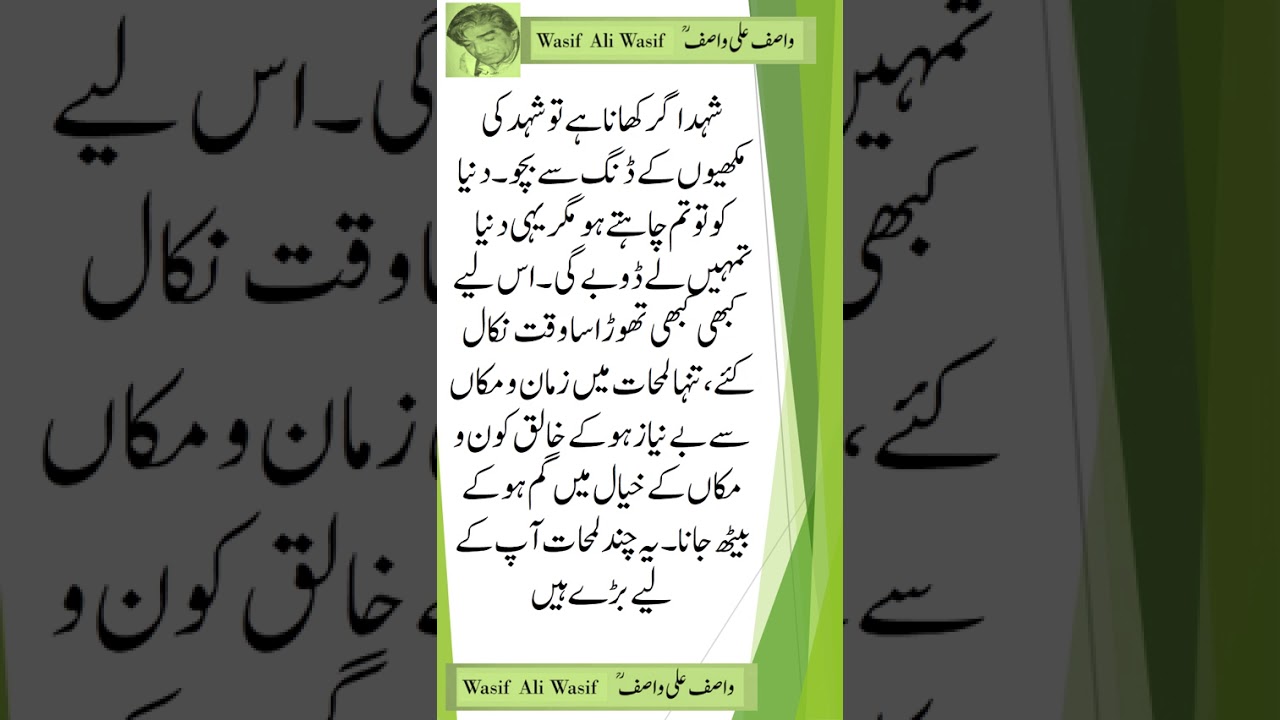 Wasif Ali Wasif واصف علی واصفؒ
شہد اگر کھانا ہے تو شہد کی
مکھیوں کے ڈنگ سے بچو۔ دنیا
کو تو تم چاہتے ہو مگر یہی دنیا
تمہیں لے ڈوبے گی۔ اس لیے
کبھی کبھی تھوڑا سا وقت نکال
کئے، تنہا لمحات میں زمان و مکاں
سے بے نیاز ہو کے خالق کون و
مکاں کے خیال میں گم ہو کے
بیٹھ جانا۔ یہ چند لمحات آپ کے
لیے بڑے ہیں
Wasif Ali Wasif واصف علی واصفؒ